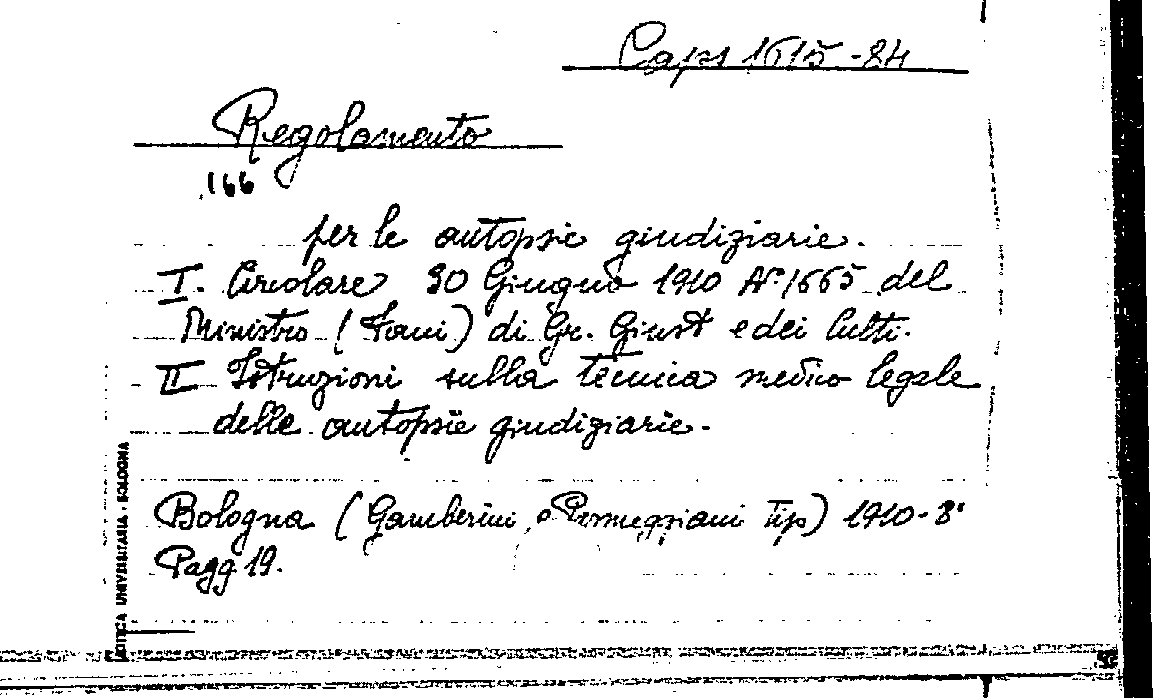 Caps 1615-84
Regolamento
166
per le autopsie giudiziarie.
I. Circolare 30 Giugno 1910 N° 1665 del
Ministro (Fani) di Gr. Giust e dei Culti.
II Istruzioni sulla tecnica medico legale
delle autopsie giudiziarie.
Bologna (Gamberini e Parmeggiani Tip) 1910-8°
Pagg 19.
UNIVERSITARIA - BOLOGNA